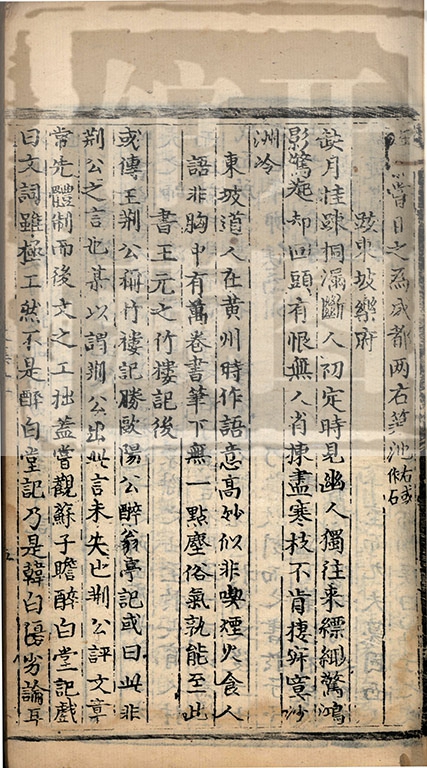 嘗目之為成都两右筍池右或作石
跋東坡樂府
缺月挂踈桐漏斷人初定時見幽人獨往来縹緲驚鴻
影驚起却回頭有恨無人省揀盡寒枝不肯捿寂寞沙
洲冷
東坡道人在黃州時作語意高妙似非喫煙火食人
語非胸中有萬卷書筆下無一點塵俗氣孰能至此
書王元之竹樓記後
或傳王荆公稱竹樓記勝歐陽公醉翁亭記或曰此非
荆公之言也某以謂荆公出此言未失也荆公評文章
常先體制而後文之工拙蓋嘗觀蘇子瞻醉白堂記戲
曰文詞雖極工然不是醉白堂記乃是韓白優劣論耳